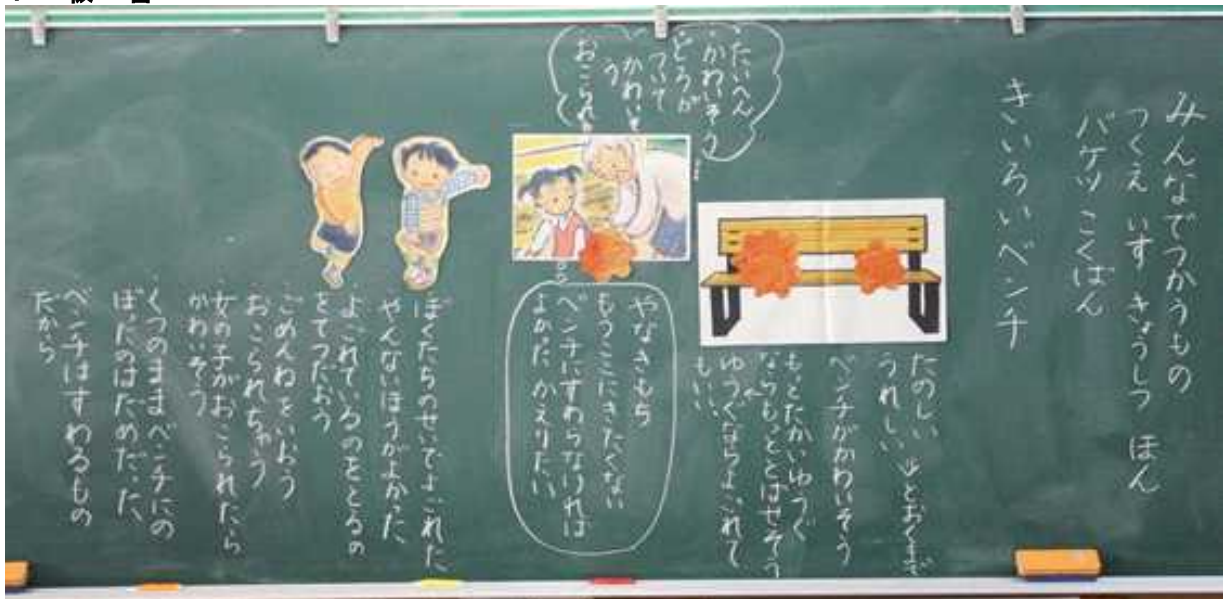 みんなでつかうもの
つくえ いす きょうしつ ほん
バケツ こくばん
きいろいベンチ
たのしい
うれしい →とおくまで
ベンチがかわいそう
もっとたかいゆうぐ
ならもっととばせそう
ゆうぐならよごれて
もいい
たいへん
かわいそう
どろが
ついて
かわいそ
う
おこられ
やなきもち
もうここにきたくない
ベンチにすわらなければ
よかった かえりたい
ぼくたちのせいでよごれた
やんないほうがよかった
よごれているのをとるの
をてつだおう
ごめんねをいおう
おこられちゃう
女の子がおこられたら
かわいそう
くつのままベンチにの
ぼったのはだめだった
ベンチはすわるもの
だから